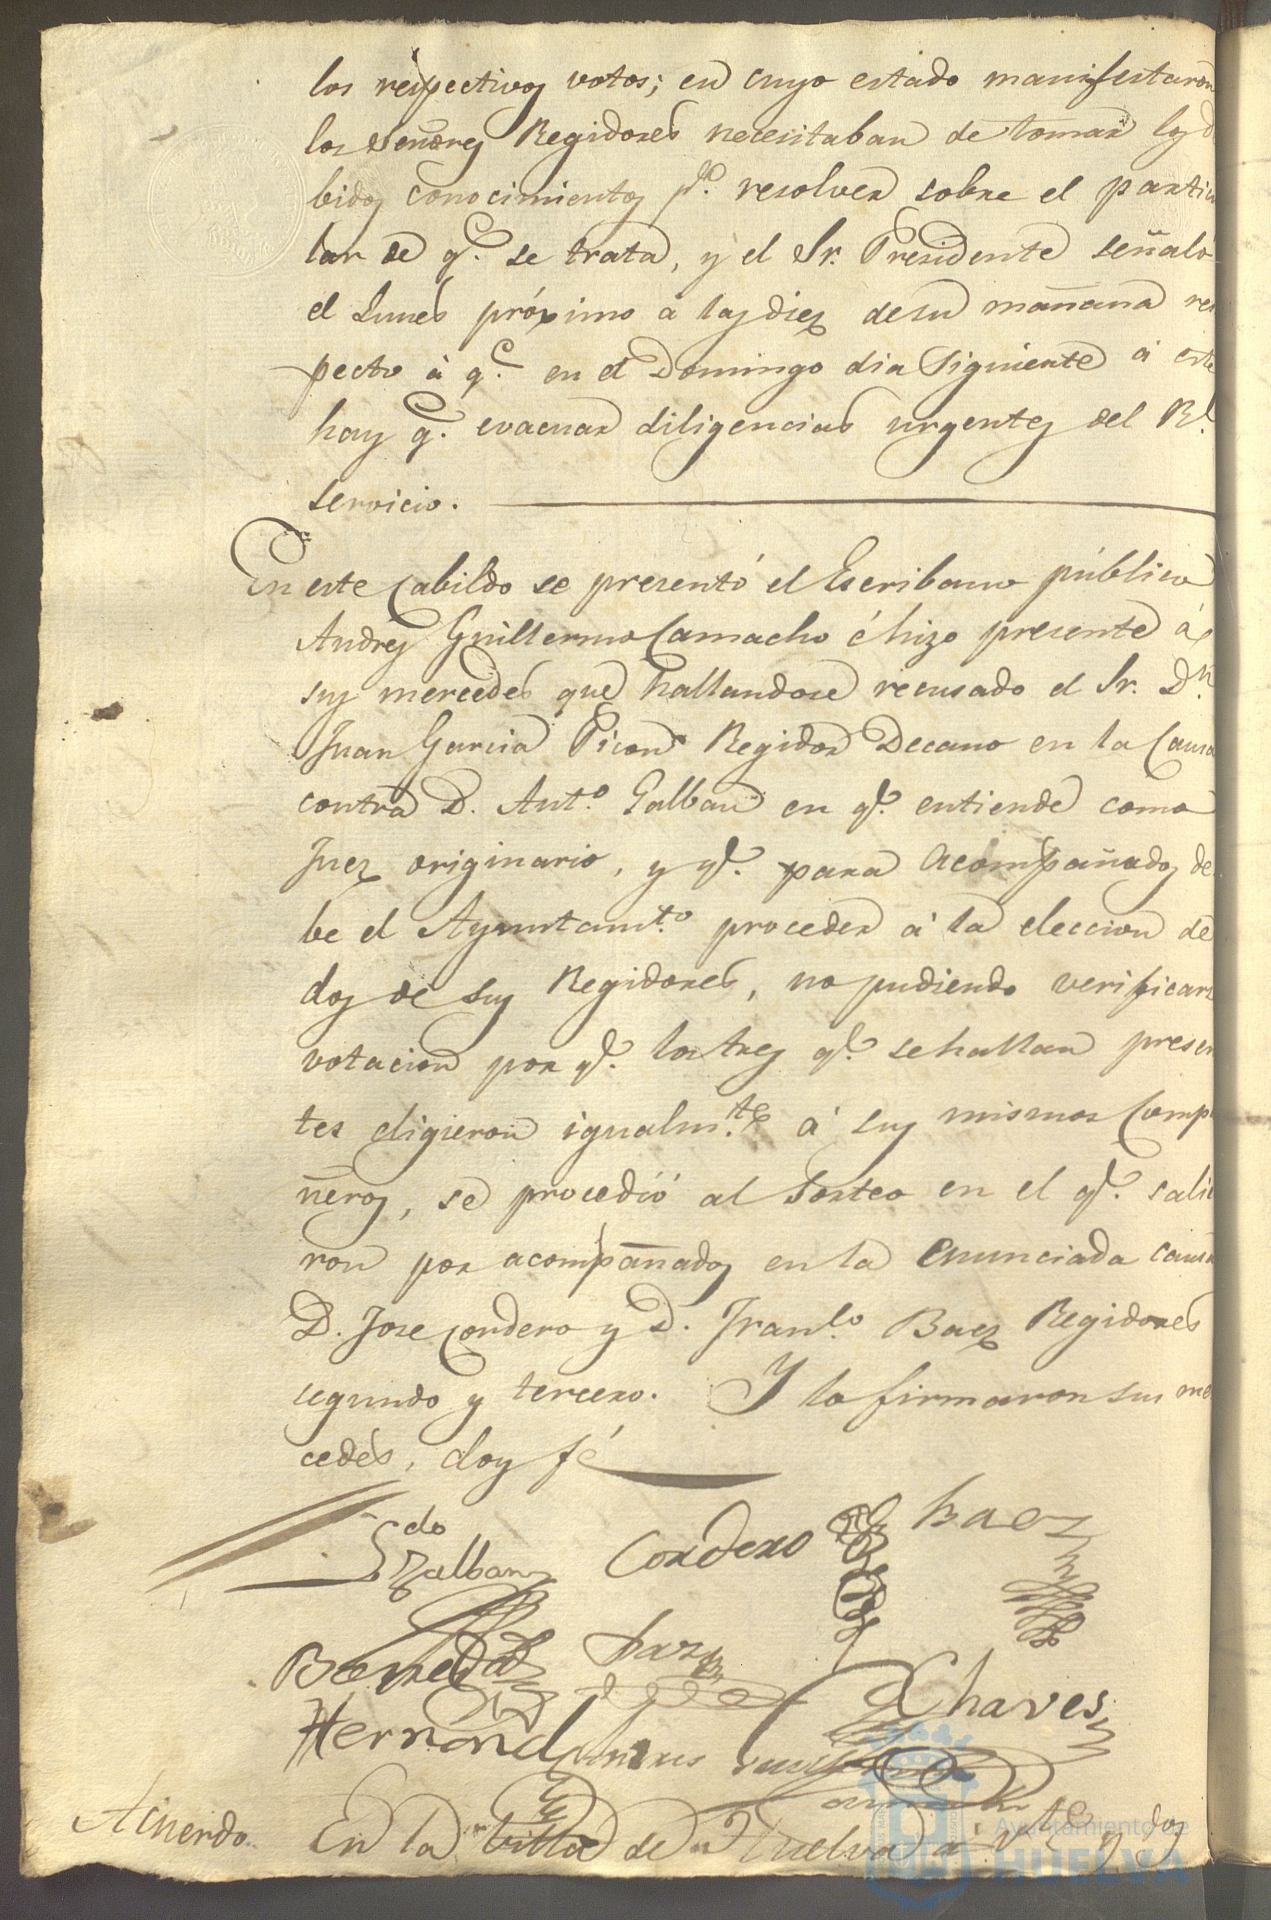 los respectivos votos; en cuyo estado manifestaron
los Señores Regidores necesitaban de tomar los d
bidos conocimientos pa. resolver sobre el particu
lar de q.e se trata, y el Sr. Presidente señaló
el Lunes próximo a las diez de su mañana res
pecto à q.e en el Domingo dia siguiente à este
hay q.e evacuar diligencias urgentes del Rl.
servicio.
En este Cabildo se presentó el Escribano público
Andres Guillermo Camacho é hizo presente á
sus mercedes que hallandose recusado el Sr. Dn.
Juan Garcia Picon Regidor Decano en la Causa
contra D. Anto. Galban en qe. entiende como
Juez originario, y qe. para Acompañados de
be el Ayuntamto. proceder à la eleccion de
dos de sus Regidores, no pudiendo verificars
votacion por qe. los tres qe. se hallan presen
tes eligieron igualmte. à sus mismos Comp
ñeros, se procedió al Sorteo en el qe. salie
ron por acompañados en la enunciada causa
D. Jose Cordero y D. Franco. Baez Regidores
segundo y tercero. Y lo firmaron sus mer
cedes, doy fé
Galban Cordero Baez
Chaves
Acuerdo
En la Villa de Huelva à vte. y dos
Ayuntamiento de
HUELVA